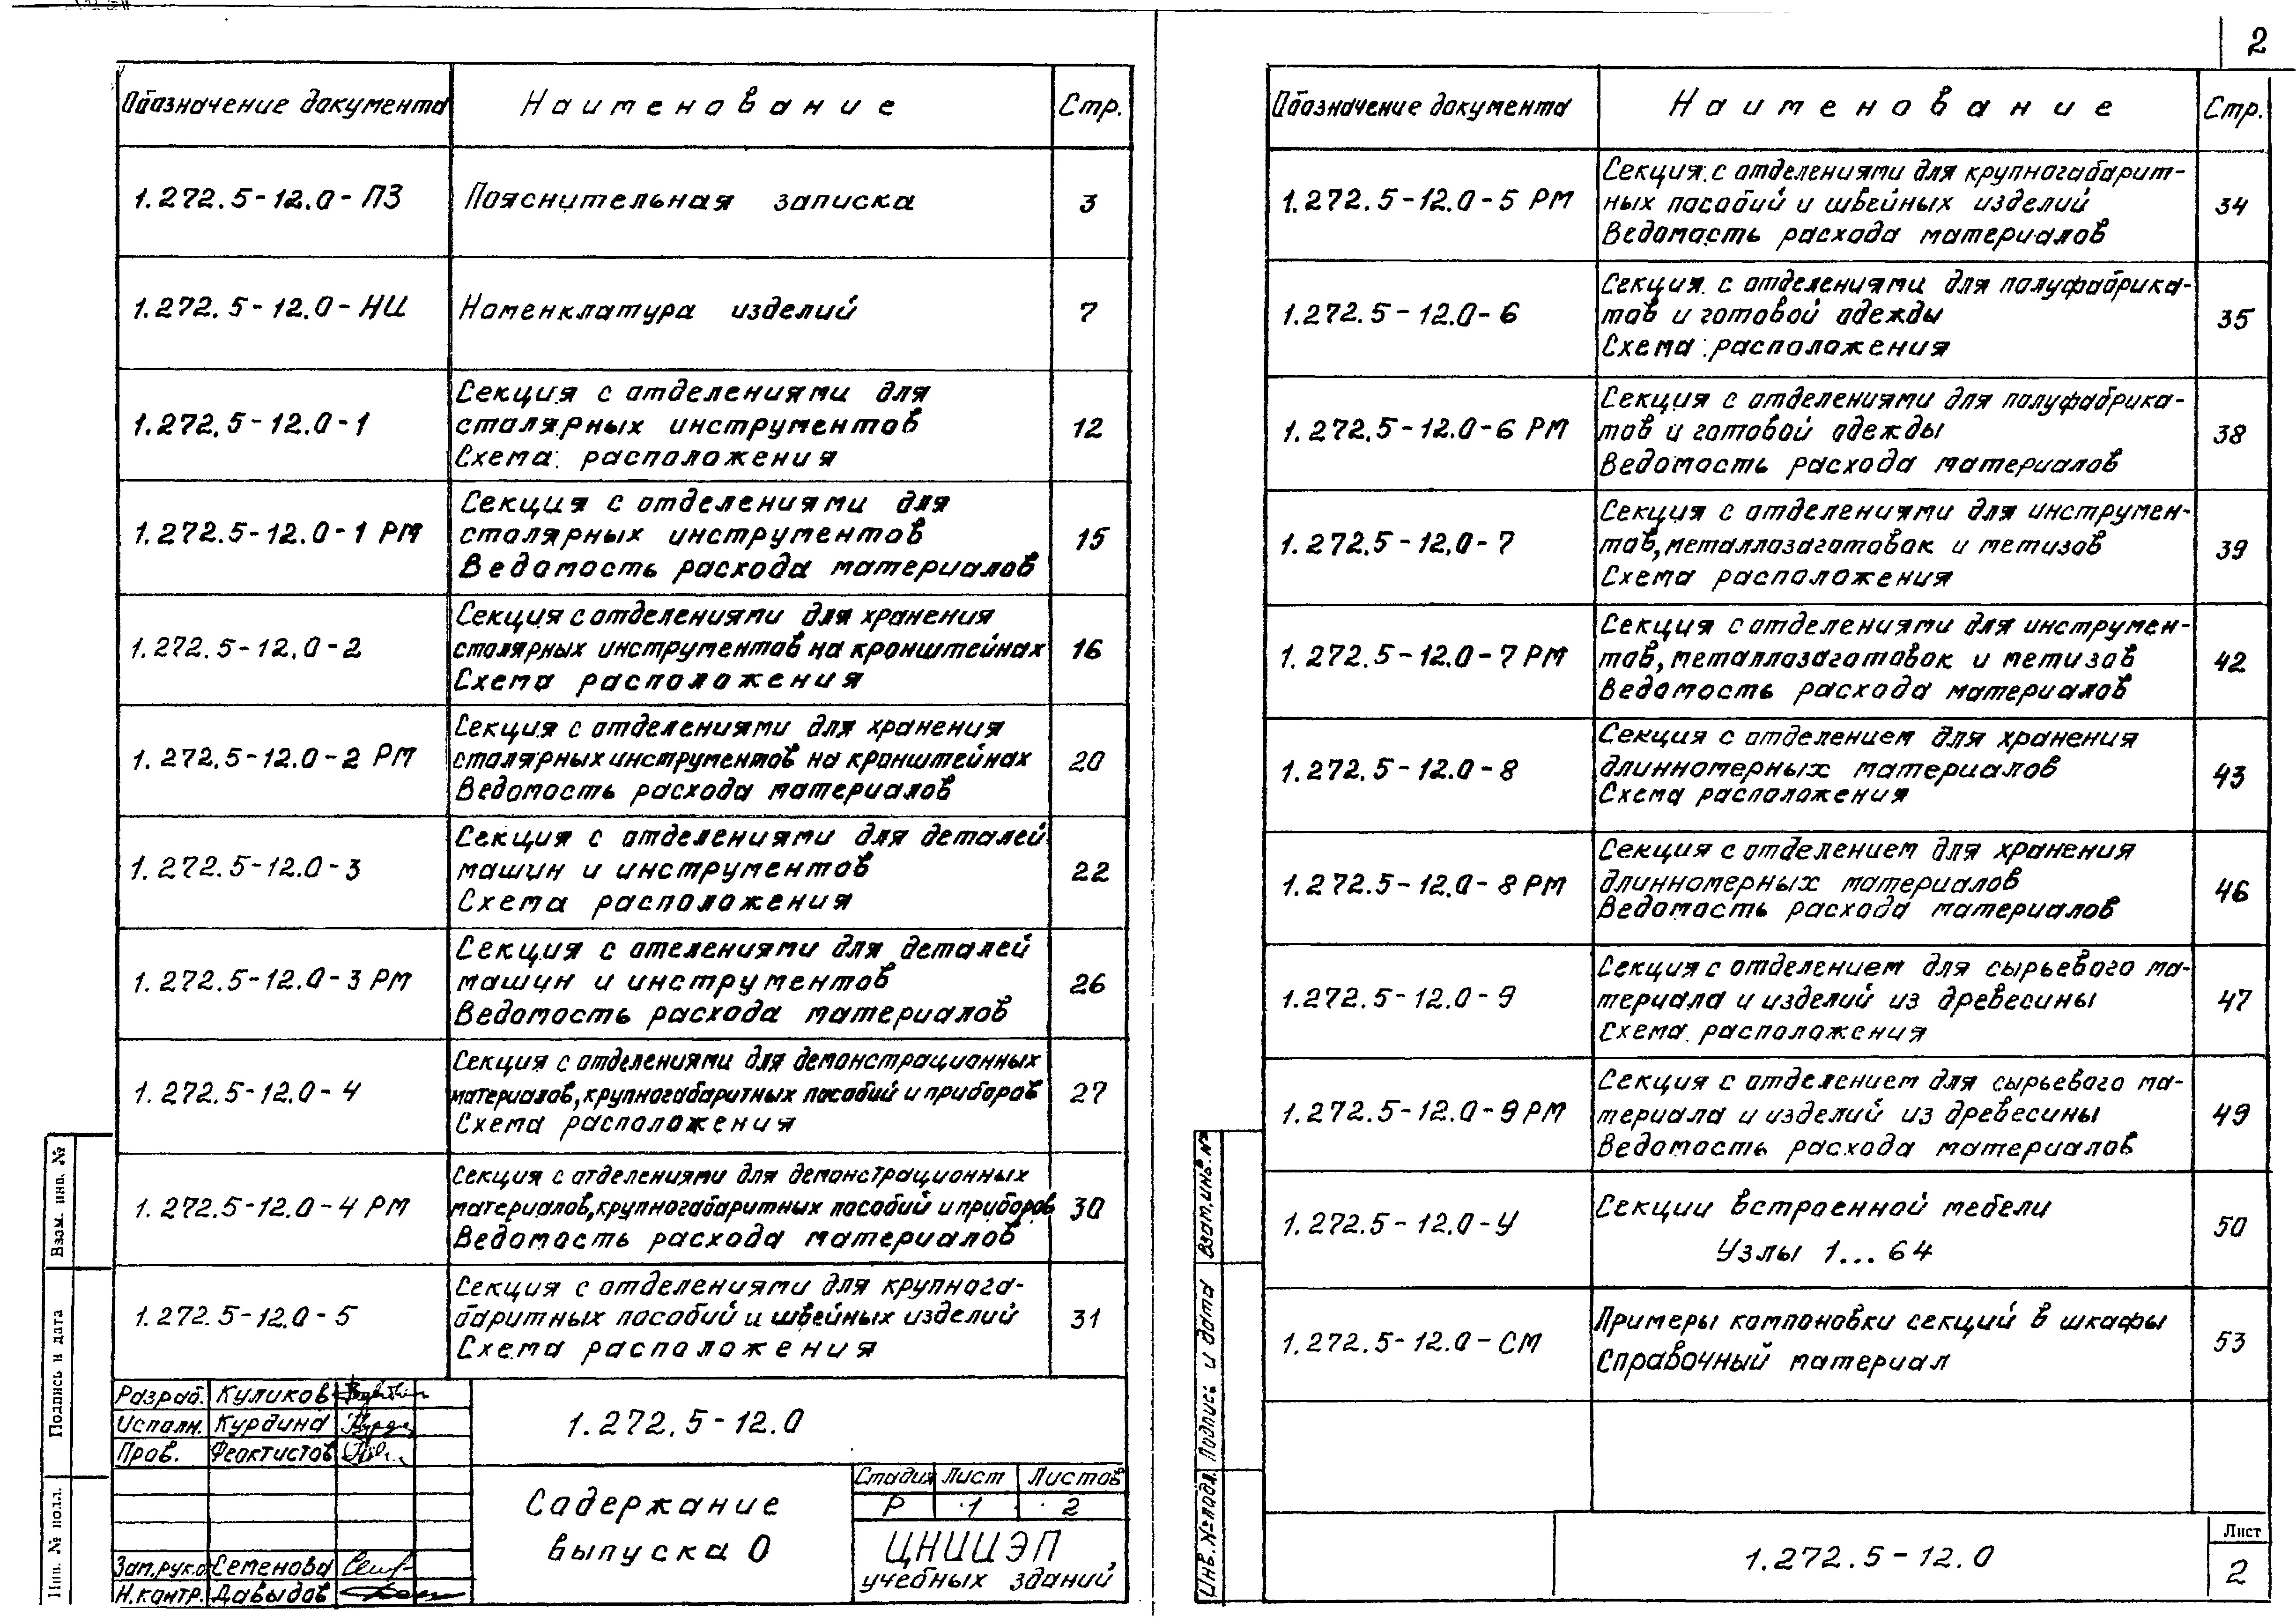 2
Обозначение документа Наименование Стр.
1.272.5-12.0-ПЗ Пояснительная записка 3
1.272.5-12.0-НИ Номенклатура изделий 7
Секция с отделениями для
1.272.5-12.0-1 столярных инструментов 12
Схема расположения
Секция с отделениями для
1.272.5-12.0-1 РМ столярных инструментов 15
Ведомость расхода материалов
Секция с отделениями для хранения
1.272.5-12.0-2 столярных инструментов на кронштейнах 16
Схема расположения
Секция с отделениями для хранения
1.272.5-12.0-2 РМ столярных инструментов на кронштейнах 20
Ведомость расхода материалов
Секция с отделениями для деталей
1.272.5-12.0-3 машин и инструментов 22
Схема расположения
Секция с отелениями для деталей
1.272.5-12.0-3 РМ машин и инструментов 26
Ведомость расхода материалов
Секция с отделениями для демонстрационных
1.272.5-12.0-4 материалов, крупногабаритных пособий и приборов 27
Схема расположения
Секция с отделениями для демонстрационных
1.272.5-12.0-4 РМ материалов, крупногабаритных пособий и приборов 30
Ведомость расхода материалов
Секция с отделениями для крупнога-
1.272.5-12.0-5 баритных пособий и швейных изделий 31
Схема расположения
Разраб. Куликов
Исполн. Курдина
Пров. Феоктистов
Зам.рук.о Семенова
Н.контр. Давыдов
1.272.5-12.0
Содержание
выпуска 0
Стадия Лист Листов
Р 1 2
ЦНИИЭП
учебных зданий
Взам. инв. №
Подпись и дата
Инв. № подл.
Обозначение документа Наименование Стр.
Секция с отделениями для крупногабарит-
1.272.5-12.0-5 РМ ных пособий и швейных изделий 34
Ведомость расхода материалов
Секция с отделениями для полуфабрика-
1.272.5-12.0-6 тов и готовой одежды 35
Схема расположения
Секция с отделениями для полуфабрика-
1.272.5-12.0-6 РМ тов и готовой одежды 38
Ведомость расхода материалов
Секция с отделениями для инструмен-
1.272.5-12.0-7 тов, металлозаготовок и метизов 39
Схема расположения
Секция с отделениями для инструмен-
1.272.5-12.0-7 РМ тов, металлозаготовок и метизов 42
Ведомость расхода материалов
Секция с отделением для хранения
1.272.5-12.0-8 длинномерных материалов 43
Схема расположения
Секция с отделением для хранения
1.272.5-12.0-8 РМ длинномерных материалов 46
Ведомость расхода материалов
Секция с отделением для сырьевого ма-
1.272.5-12.0-9 териала и изделий из древесины 47
Схема расположения
Секция с отделением для сырьевого ма-
1.272.5-12.0-9 РМ териала и изделий из древесины 49
Ведомость расхода материалов
Секции встроенной мебели
1.272.5-12.0-У 50
Узлы 1...64
Примеры компоновки секций в шкафы
1.272.5-12.0-СМ 53
Справочный материал
Взам.инв.№
Подпись и дата
Инв.№подл.
1.272.5-12.0
Лист
2